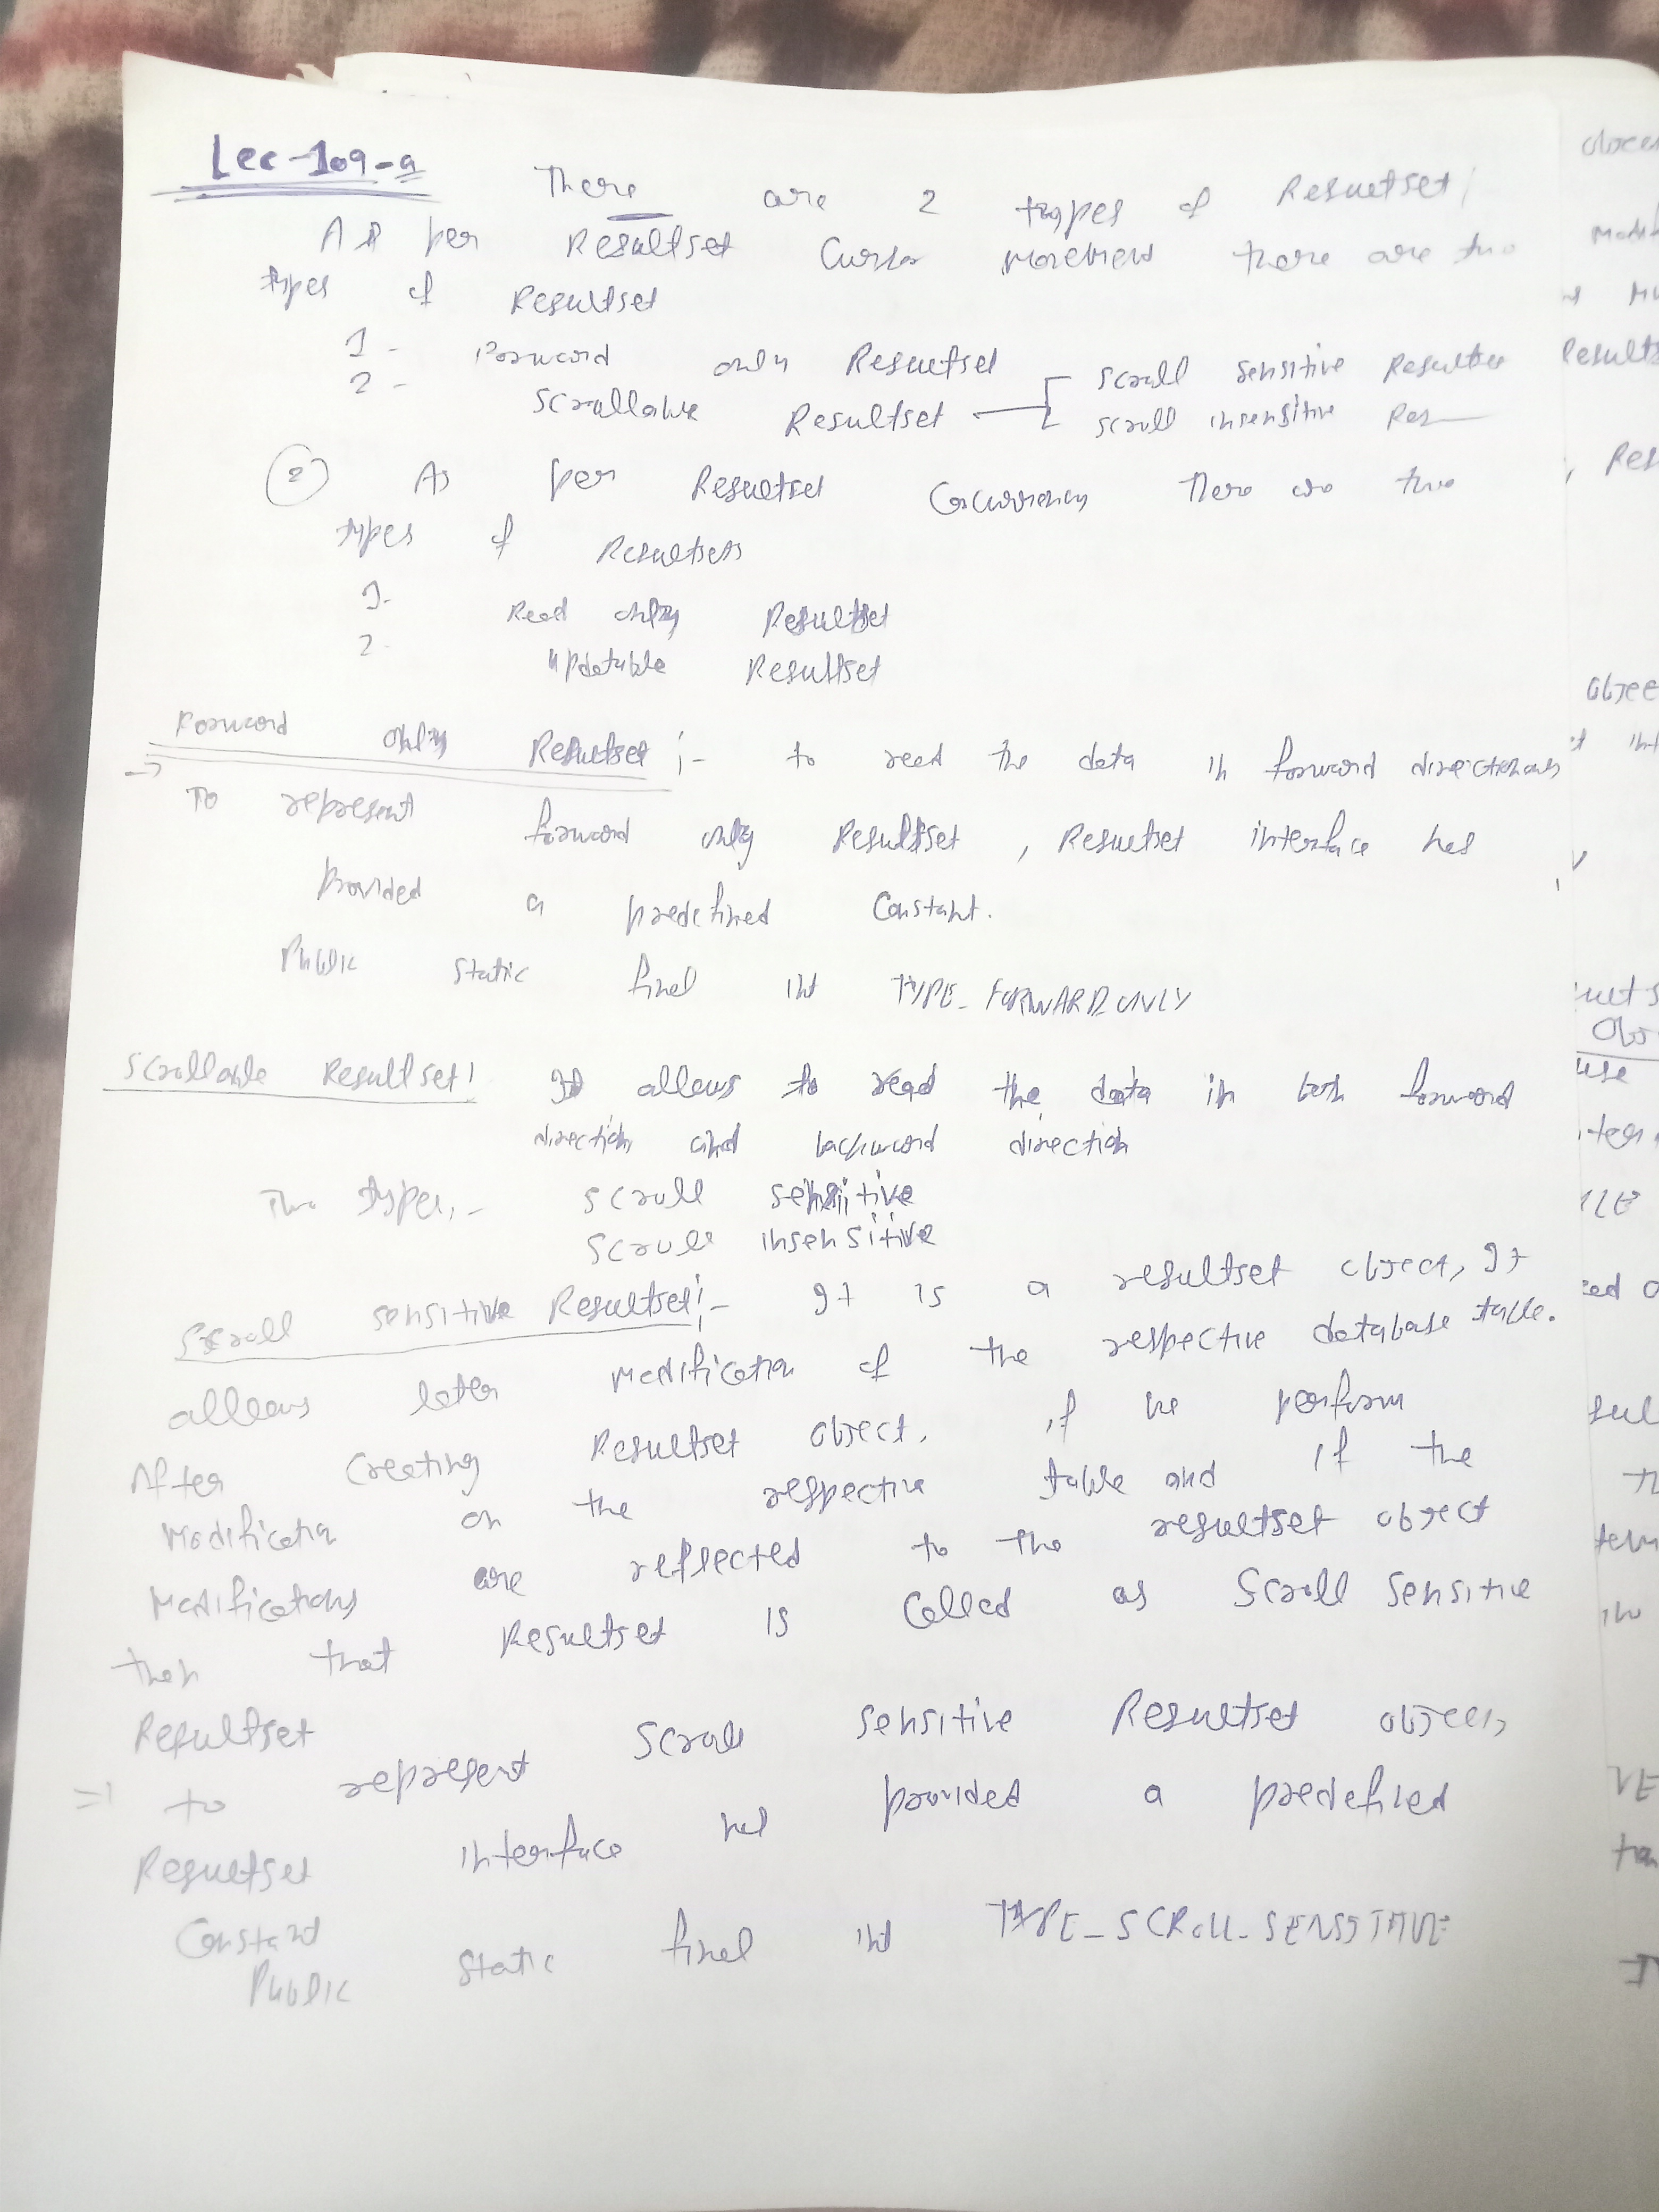 Lec-109-a
There are 2 types of Resultset
As per Resultset Cursor movement there are two
types of Resultset
1 - Forword only Resultset
2 - Scrollable Resultset
scroll sensitive Resultse
scroll insensitive Res
(2) As per Resultset Concurrency There are two
types of Resultsets
1- Read only Resultset
2- updatable Resultset
Forword only Resultset :- to read the data in forword direction only
→ To represent forword only Resultset, Resultset interface has
provided a predefined constant.
Public static final int TYPE_FORWARD_ONLY
Scrollable Resultset! It allows to read the data in both forword
direction and backword direction
Two types:- scroll sensitive
scroll insensitive
Scroll sensitive Resultset:- It is a resultset object, It
allows later modification of the respective database table.
After creating Resultset object, if we perform
Modification on the respective table and if the
Modifications are reflected to the resultset object
then that Resultset is called as Scroll Sensitive
Resultset
=> to represent Scroll Sensitive Resultset object,
Resultset interface has provided a predefined
Constant
Public static final int TYPE_SCROLL_SENSITIVE